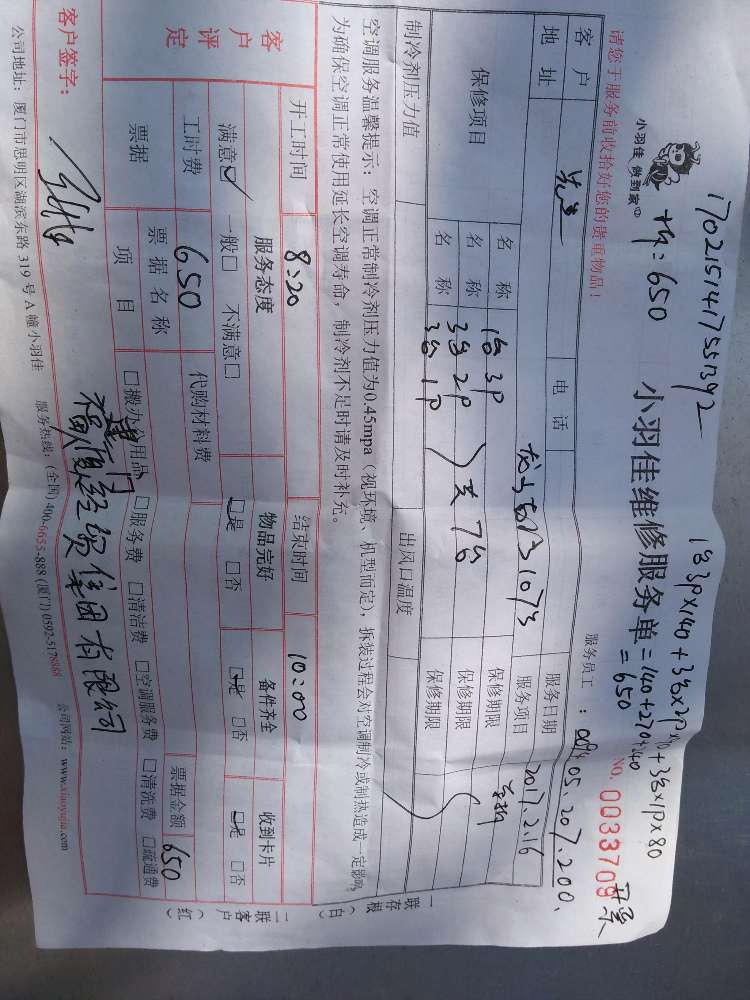 170215141755392
小羽佳 做到家
1台3P×140+3台×2P×90+3台×1P×80
=650
小羽佳维修服务单
=140+270+240
=650
No. 0033709
开票
请您于服务前收拾好您的贵重物品！
服务员工：
05.207.200.
客户
电话
服务日期
2017.2.16
地址
服务项目
保修项目
名称
1台3P
保修期限
名称
3台2P
共7台
保修期限
名称
3台1P
保修期限
制冷剂压力值
出风口温度
空调服务温馨提示：空调正常制冷剂压力值为0.45mpa（视环境、机型而定），拆装过程会对空调制冷或制热造成一定影响，
为确保空调正常使用延长空调寿命，制冷剂不足时请及时补充。
开工时间
8:20
结束时间
10:00
客户评定
服务态度
物品完好
备件齐全
收到卡片
满意☑ 一般□ 不满意□
☑是 □否
☑是 □否
☑是 □否
工时费
650
代购材料费
票据金额
650
票据
票据名称
项目
□搬办公用品 □服务费 □清洁费 □空调服务费 □清洗费 □疏通费
客户签字：
厦门
经贸集团有限公司
公司地址：厦门市思明区湖滨东路 319 号 A 幢小羽佳 服务热线：(全国) 400-6655-888 (厦门) 0592-5178888 公司网站：www.xiaoyujia.com
一联存根（白）
二联客户（红）